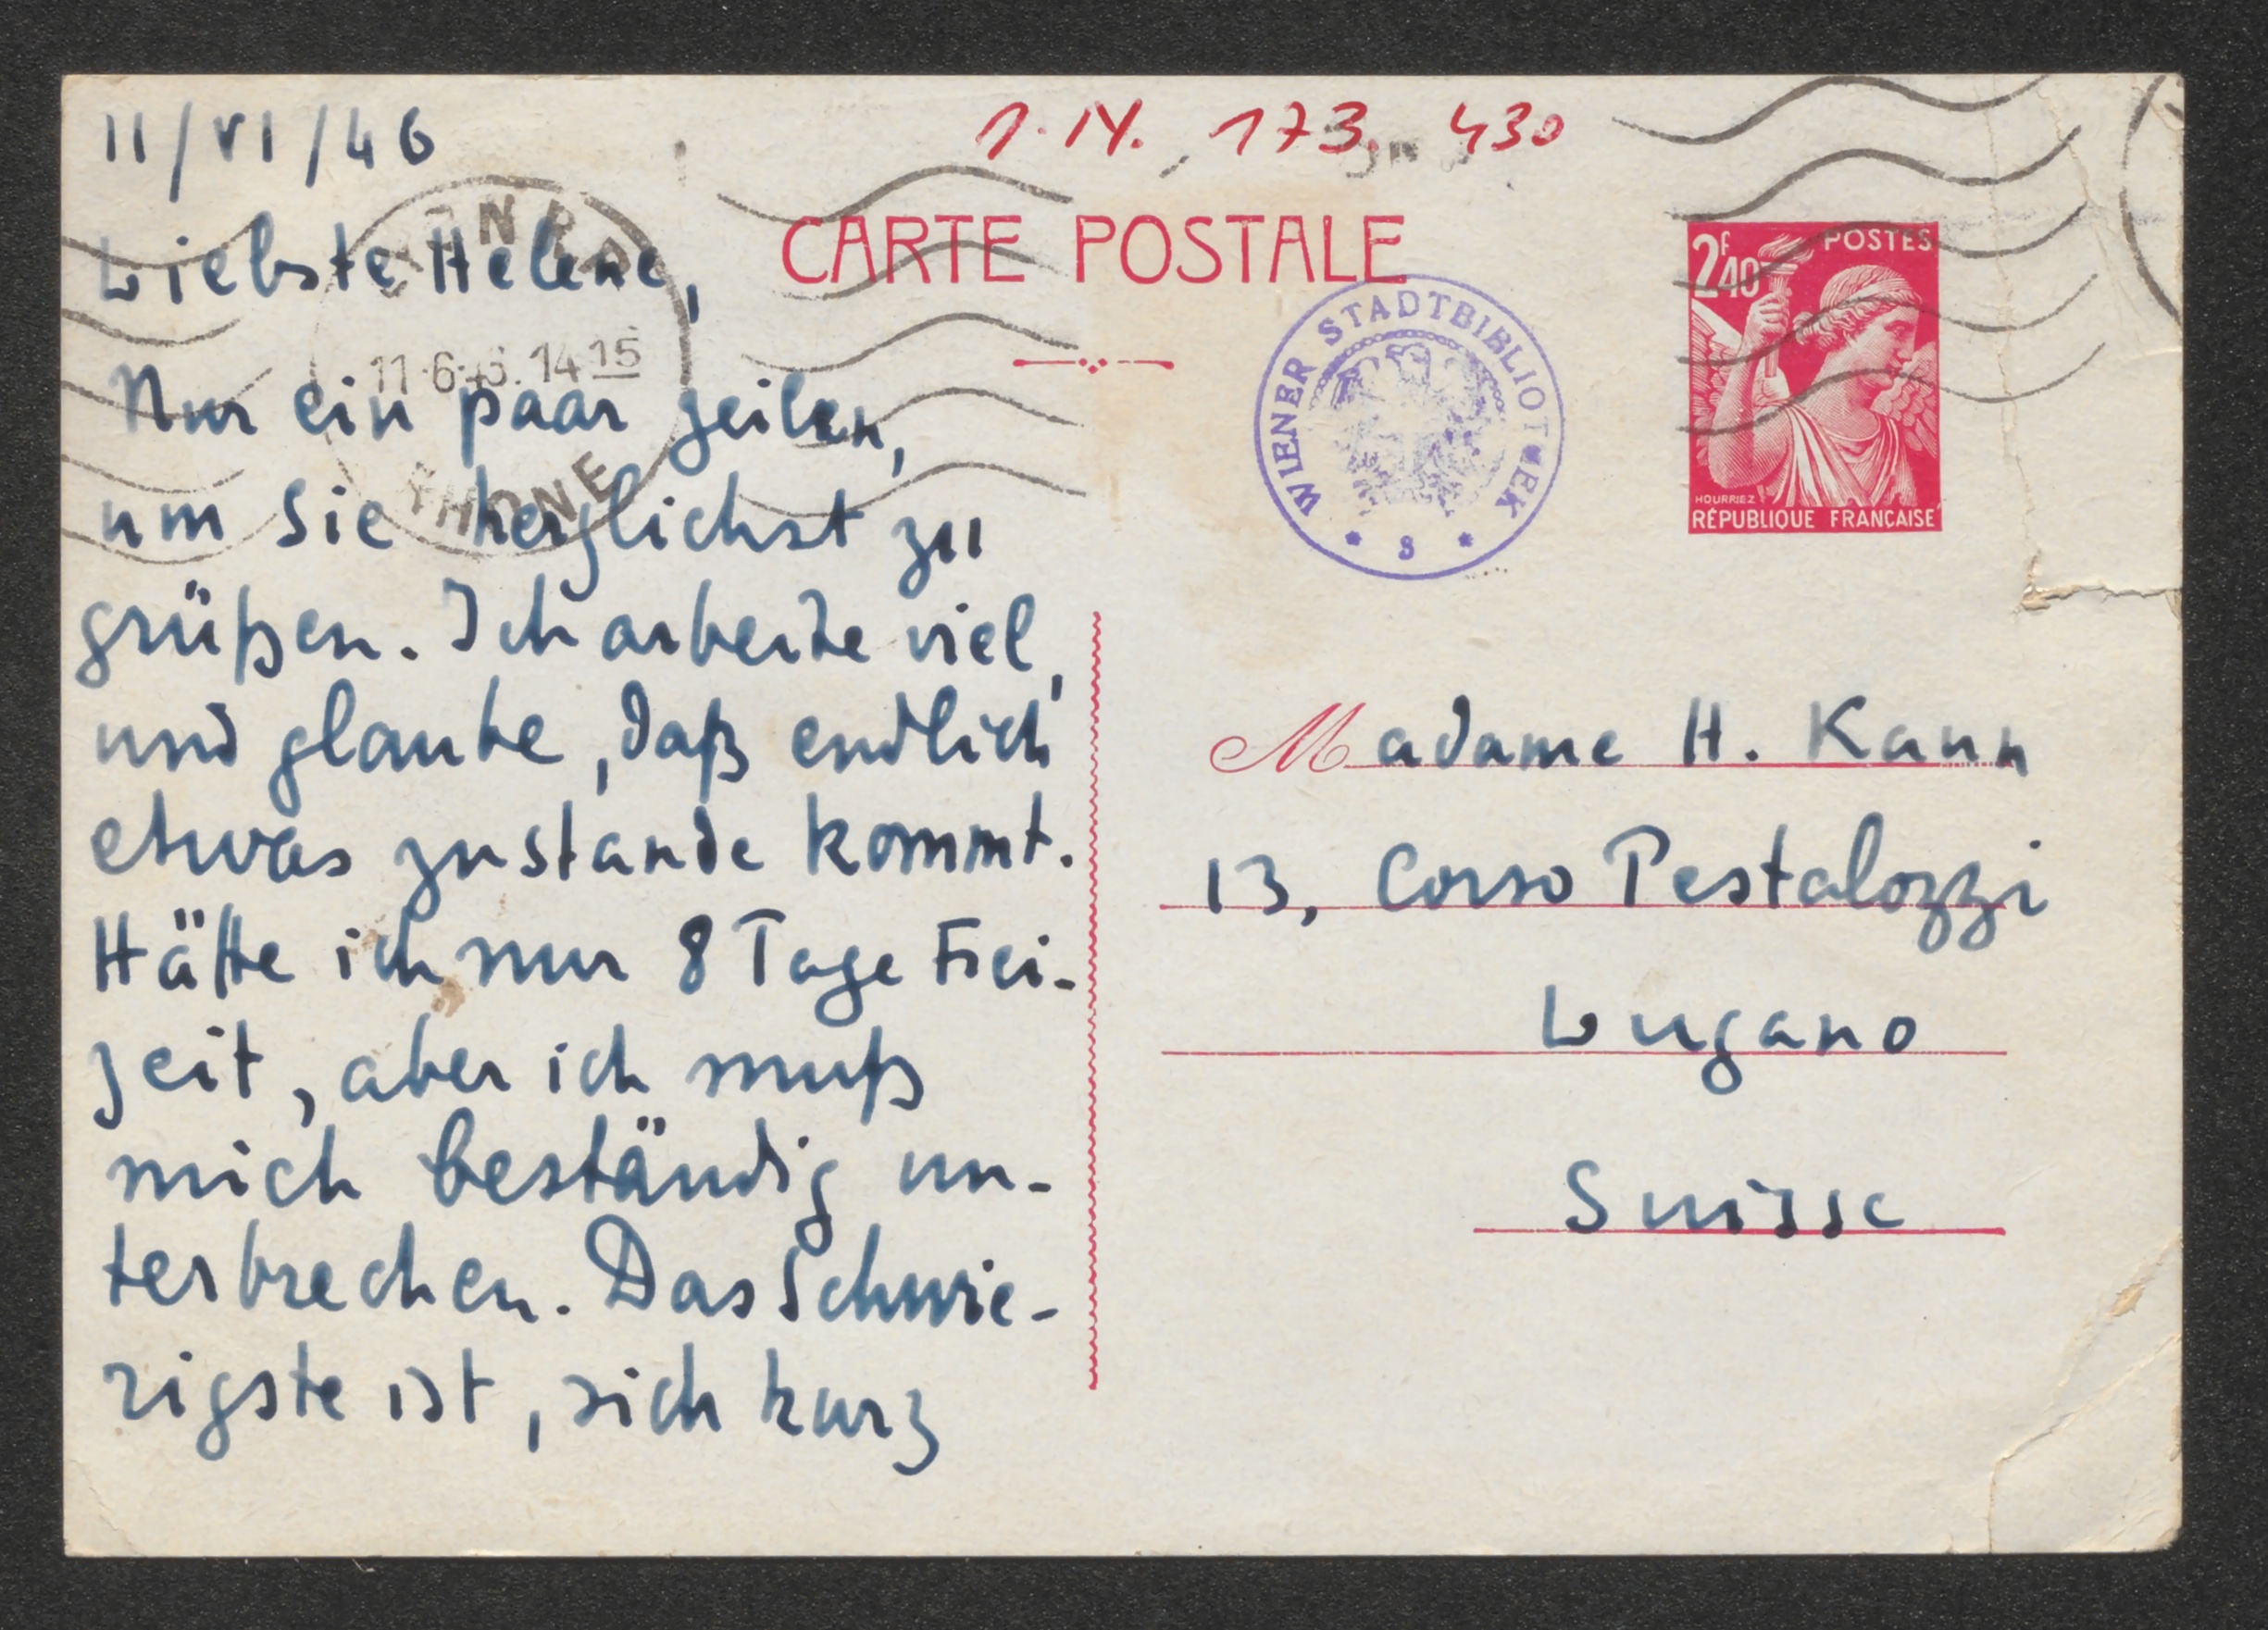 11/VI/46
Liebste Helene,
Nur ein paar Zeilen,
um Sie herzlichst zu
grüßen. Ich arbeite viel,
und glaube, daß endlich
etwas zustande kommt.
Hätte ich nur 8 Tage Frei-
zeit, aber ich muß
mich beständig un-
terbrechen. Das Schwie-
rigste ist, sich kurz
11·6·46. 14 15
RHONE
I.N. 173.430
CARTE POSTALE
WIENER STADTBIBLIOTHEK
* 8 *
2F40 POSTES
HOURRIEZ
RÉPUBLIQUE FRANÇAISE
Madame H. Kann
13, Corso Pestalozzi
Lugano
Suisse